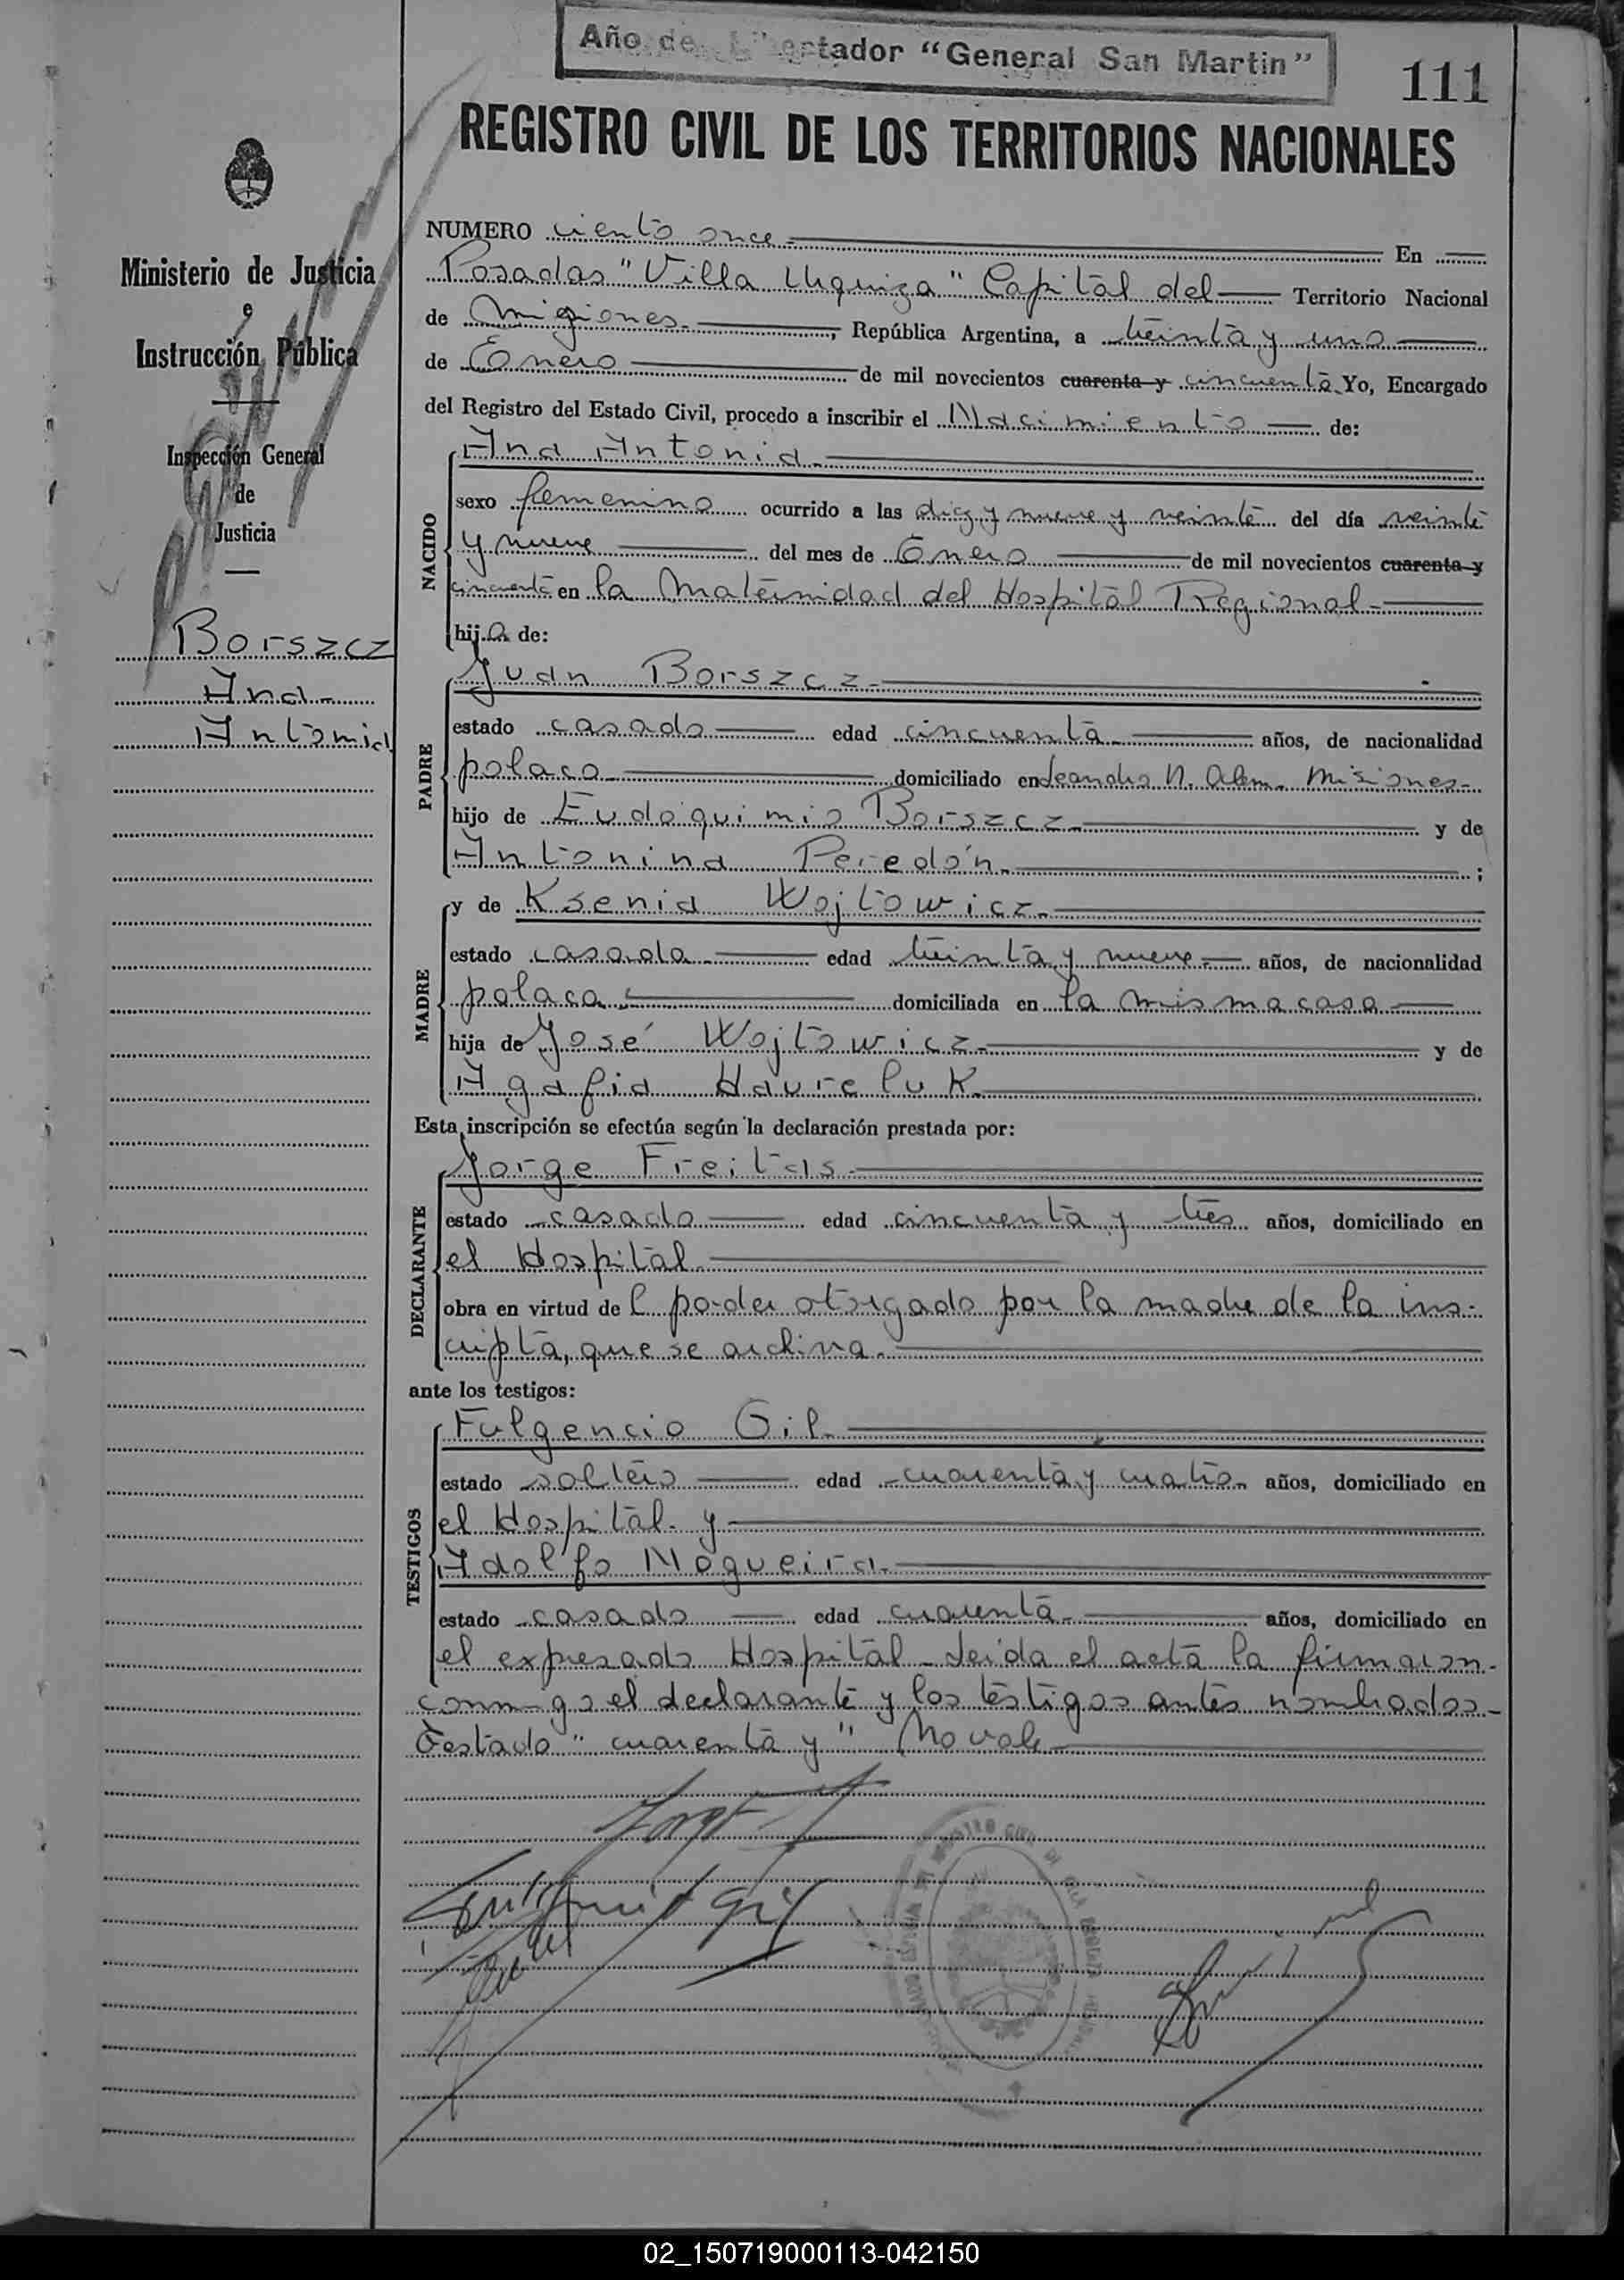 Año del Libertador "General San Martin"
111
REGISTRO CIVIL DE LOS TERRITORIOS NACIONALES
Ministerio de Justicia
e
Instrucción Pública
Inspección General
de
Justicia
Borszcz
Ana
Antonia
NUMERO ciento once En
Posadas "Villa Urquiza" Capital del Territorio Nacional
de Misiones, República Argentina, a treinta y uno
de Enero de mil novecientos cuarenta y cincuenta Yo, Encargado
del Registro del Estado Civil, procedo a inscribir el Nacimiento de:
NACIDO
Ana Antonia
sexo femenino ocurrido a las diez y nueve y veinte del día veinte
y nueve del mes de Enero de mil novecientos cuarenta y
cincuenta en la Maternidad del Hospital Regional
hija de:
PADRE
Juan Borszcz
estado casado edad cincuenta años, de nacionalidad
polaca domiciliado en Leandro N. Alem. Misiones
hijo de Eudoquimio Borszcz y de
Antonina Peredón ;
MADRE
y de Ksenia Wojtowicz
estado casada edad treinta y nueve años, de nacionalidad
polaca domiciliada en la misma casa
hija de José Wojtowicz y de
Agafia Haureluk
Esta inscripción se efectúa según la declaración prestada por:
DECLARANTE
Jorge Freitas
estado casado edad cincuenta y tres años, domiciliado en
el Hospital
obra en virtud del poder otorgado por la madre de la ins-
cripta, que se archiva.
ante los testigos:
TESTIGOS
Fulgencio Gil
estado soltero edad cuarenta y cuatro años, domiciliado en
el Hospital y
Adolfo Nogueira
estado casado edad cuarenta años, domiciliado en
el expresado Hospital. Leida el acta la firmaron
conmigo el declarante y los testigos antes nombrados
Testado "cuarenta y" No vale
02_150719000113-042150